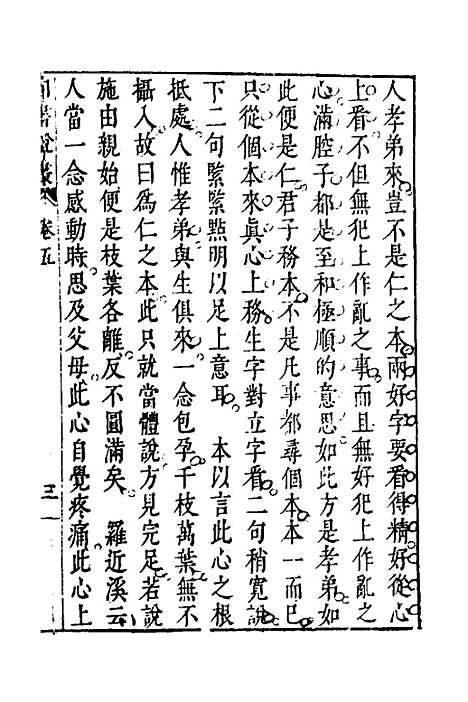 人孝弟來豈不是仁之本兩好字要看得精好從心
上看不但無犯上作亂之事而且無好犯上作亂之
心滿腔子都是至和極順的意思如此方是孝弟如
此便是仁君子務本不是凡事都尋個本本一而已
只從個本來眞心上務生字對立字看二句稍寬說
下二句緊緊點明以足上意耳 本以言此心之根
抵處人惟孝弟與生俱來一念包孕千枝萬葉無不
攝入故曰爲仁之本此只就當體說方見完足若說
施由親始便是枝葉各離反不圓滿矣 羅近溪云
人當一念感動時思及父母此心自覺疼痛此心上
卷五
三